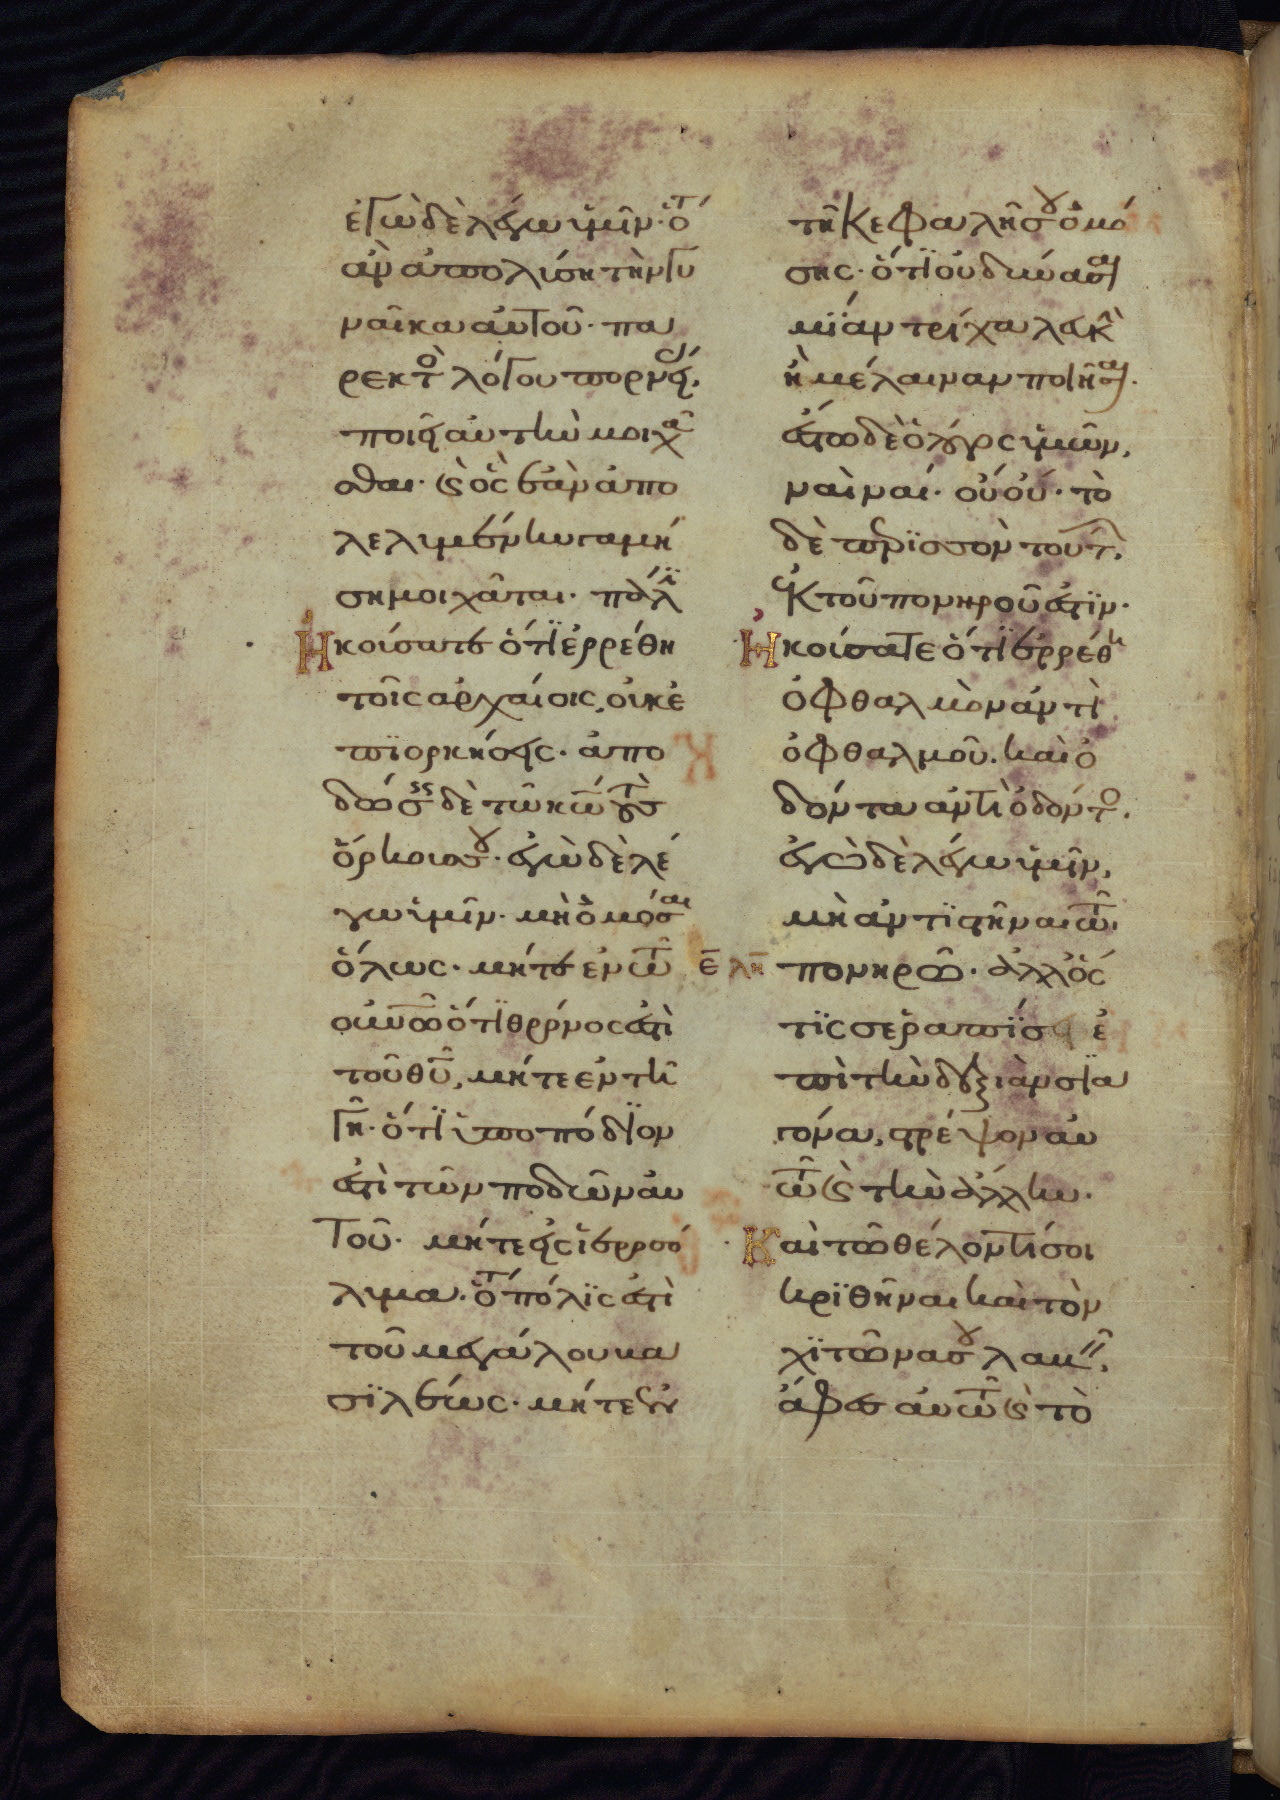 ἐγὼ δὲ λέγω ὑμῖν· ὅτ
ἂν ἀπολύση τὴν γυ
ναῖκα αὐτοῦ· πα
ρεκτὸ λόγου πορνεί.
ποιεῖ αὐτὴν μοιχᾶ
σθαι· ϗ ὃς ἐὰν ἀπο
λελυμένην γαμή
ση μοιχᾶται· πάλϊ
Ἠκούσατε ὅτϊ ἐρρέθη
τοῖς ἀρχαίοις, οὐκ ἐ
πϊορκήσεις· ἀπο
δώσς δὲ τῶ κω τοὺσ
ὅρκουσ σου· ἐγὼ δὲ λέ
γω ὑμῖν· μὴ ὀμόσαι
ὅλως· μήτε ἐν τῶ
οὐνῶ ὅτϊ θρόνος ἐστὶ
τοῦ θυ, μήτε ἐν τῆ
γῆ· ὅτϊ ὑποπόδϊον
ἐστὶ τῶν ποδῶν αὐ
τοῦ· μήτε εἰς ἱεροσό
λυμα· ὅτ πόλϊς ἐστὶ
τοῦ μεγάλου βα
σϊλέως· μήτε ἐν
τῆ κεφαλῆ σου ὀμό
σης· ὅτϊ οὐ δύνασαι
μϊαν τρίχα λευκὴ
ἢ μέλαιναν ποιῆσαι·
ἔστω δὲ ὁ λόγος ὑμῶν,
ναὶ ναί· οὒ οὔ· τὸ
δὲ περϊσσὸν τούτ,
ἐκ τοῦ πονηροῦ ἐστϊν·
Ἠκούσατε ὅτϊ ἐρρέθη
ὀφθαλμὸν ἀντὶ
ὀφθαλμοῦ. καὶ ὀ
δόντα ἀντὶ ὀδόντο.
ἐγὼ δὲ λέγω ὑμῖν,
μὴ ἀντϊστῆναι τῶ
πονηρῶ· ἀλλ' ὅς
τϊς σε ῥαπίσει ἐ
πὶ τὴν δεξιὰν σϊα
γόνα, στρέψον αὐ
τῶ ϗ τὴν ἄλλην·
Καὶ τῶ θέλοντί σοι
κρϊθῆναι καὶ τὸν
χϊτῶνα σου λαβ,
ἄφες αὐτῶ ϗ τὸ